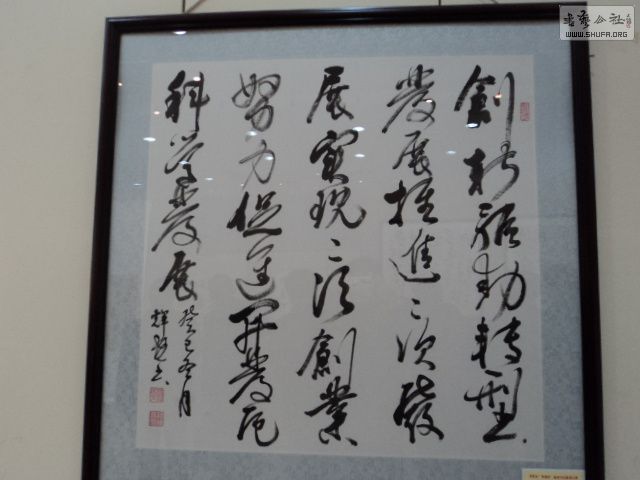 創新驅動轉型
發展推進二次發
展實現二次創業
努力促進開發區
科學發展
癸巳冬月
書藝公社
WWW.SHUFA.ORG